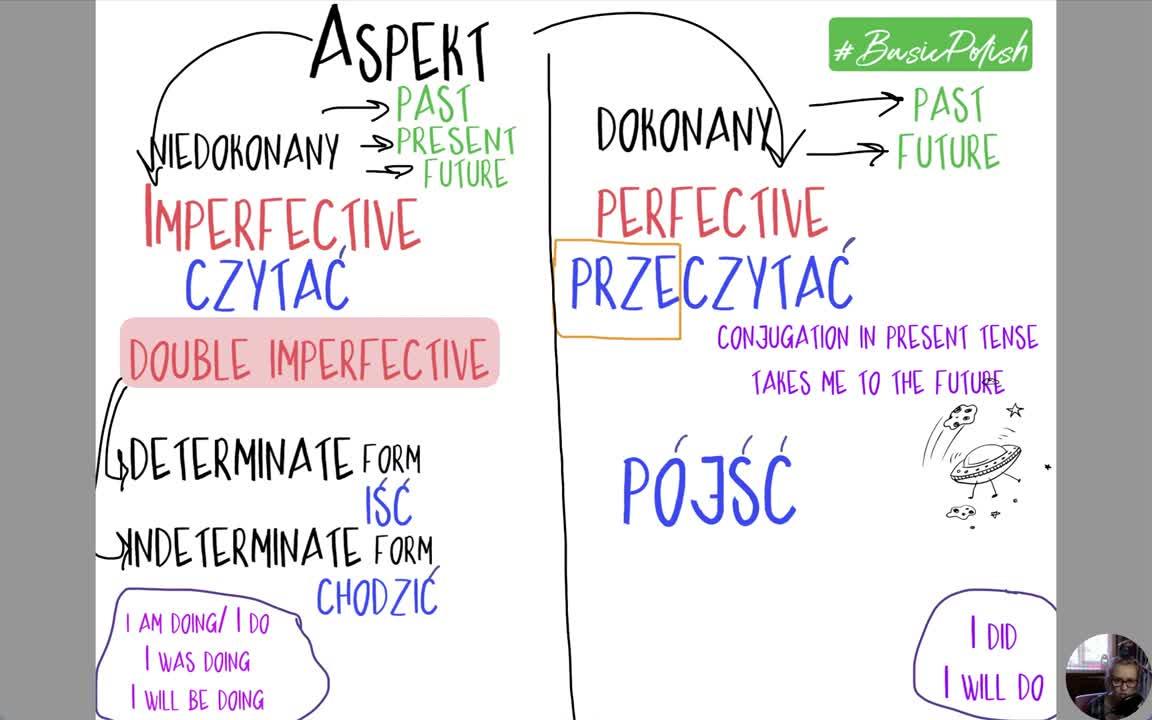 ASPEKT
#BasicPolish
NIEDOKONANY
PAST
PRESENT
FUTURE
IMPERFECTIVE
CZYTAĆ
DOUBLE IMPERFECTIVE
DETERMINATE FORM
IŚĆ
INDETERMINATE FORM
CHODZIĆ
I AM DOING/ I DO
I WAS DOING
I WILL BE DOING
DOKONANY
PAST
FUTURE
PERFECTIVE
PRZECZYTAĆ
CONJUGATION IN PRESENT TENSE
TAKES ME TO THE FUTURE
PÓJŚĆ
I DID
I WILL DO